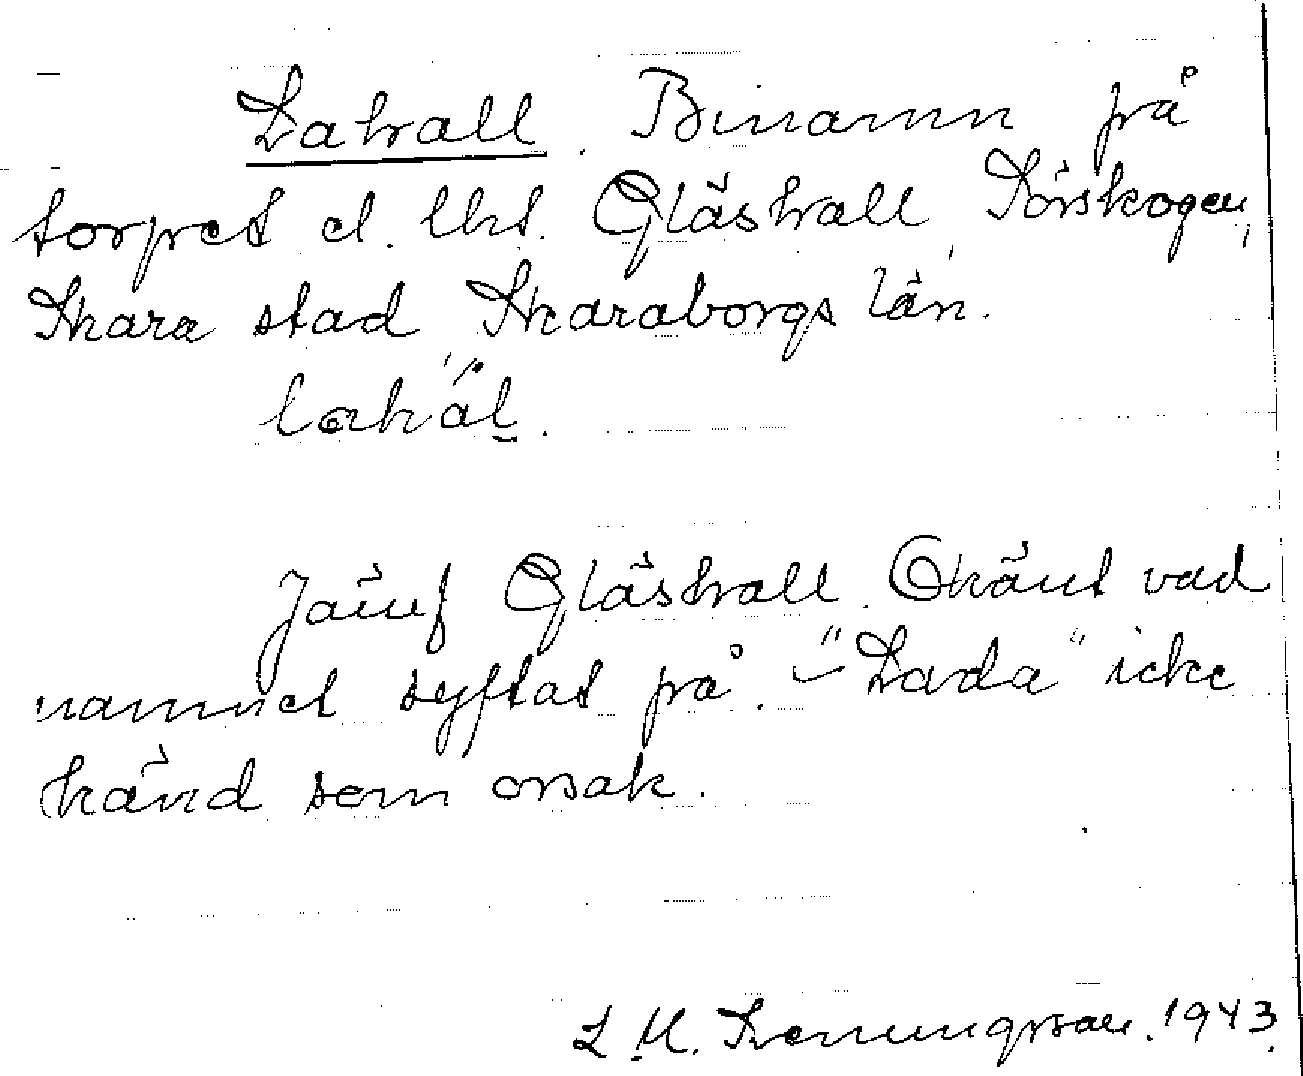 Lahall. Binamn på
torpet el. lht. Gläshall, Törskogen,
Skara stad Skaraborgs län.
Jämf Gläshall. Okänt vad
namnet syftat på. – "Lada" icke
känd som orsak.
L M. 1943.